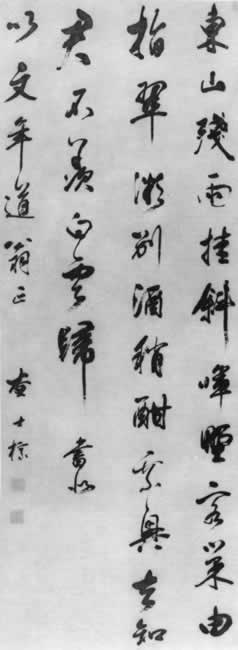 東山殘雨挂斜暉野客巢由
指翠微別酒稍酣乘興去知
君不羨白雲歸 書似
以文年道翁正 查士標